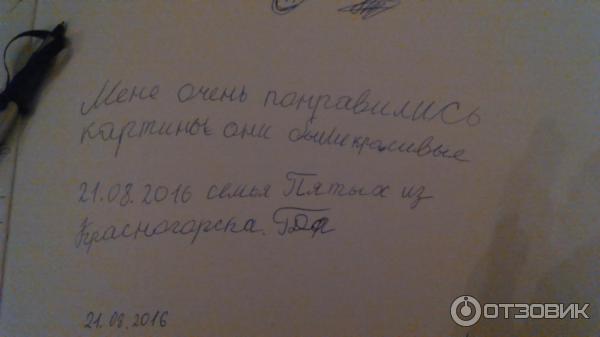 Мене очень понравились
картины они были красивые
21.08.2016 семья Пятых из
Красногорска.
21.08.2016
ОТЗОВИК